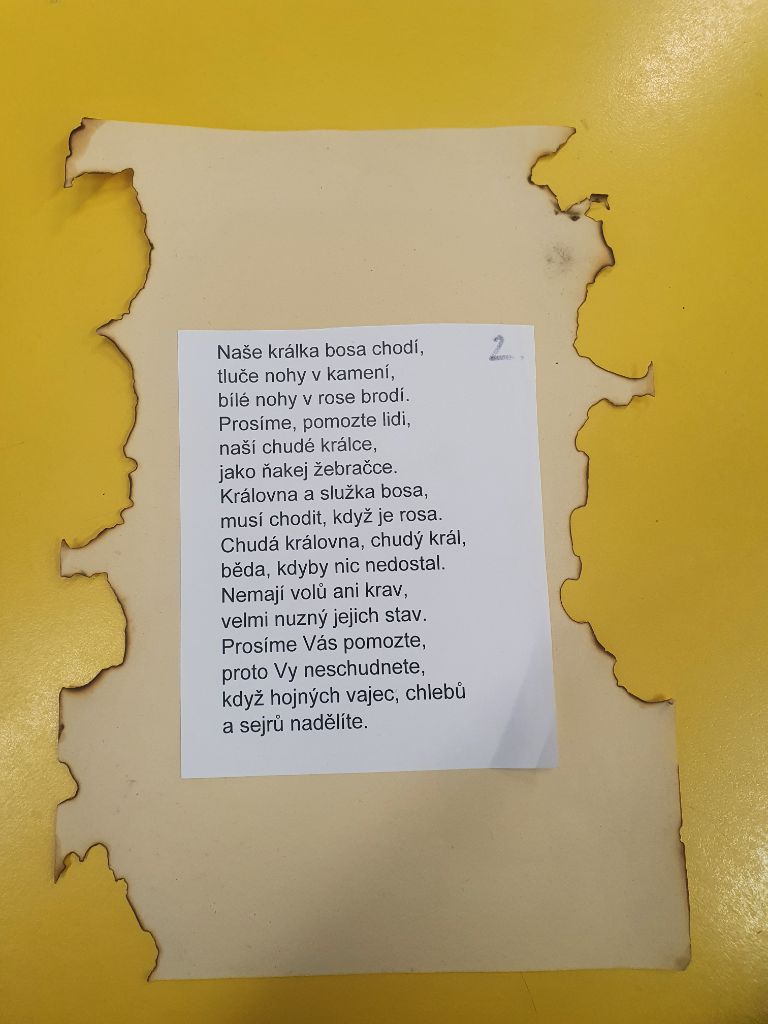 2.
Naše králka bosa chodí,
tluče nohy v kamení,
bílé nohy v rose brodí.
Prosíme, pomozte lidi,
naší chudé králce,
jako ňakej žebračce.
Královna a služka bosa,
musí chodit, když je rosa.
Chudá královna, chudý král,
běda, kdyby nic nedostal.
Nemají volů ani krav,
velmi nuzný jejich stav.
Prosíme Vás pomozte,
proto Vy neschudnete,
když hojných vajec, chlebů
a sejrů nadělíte.